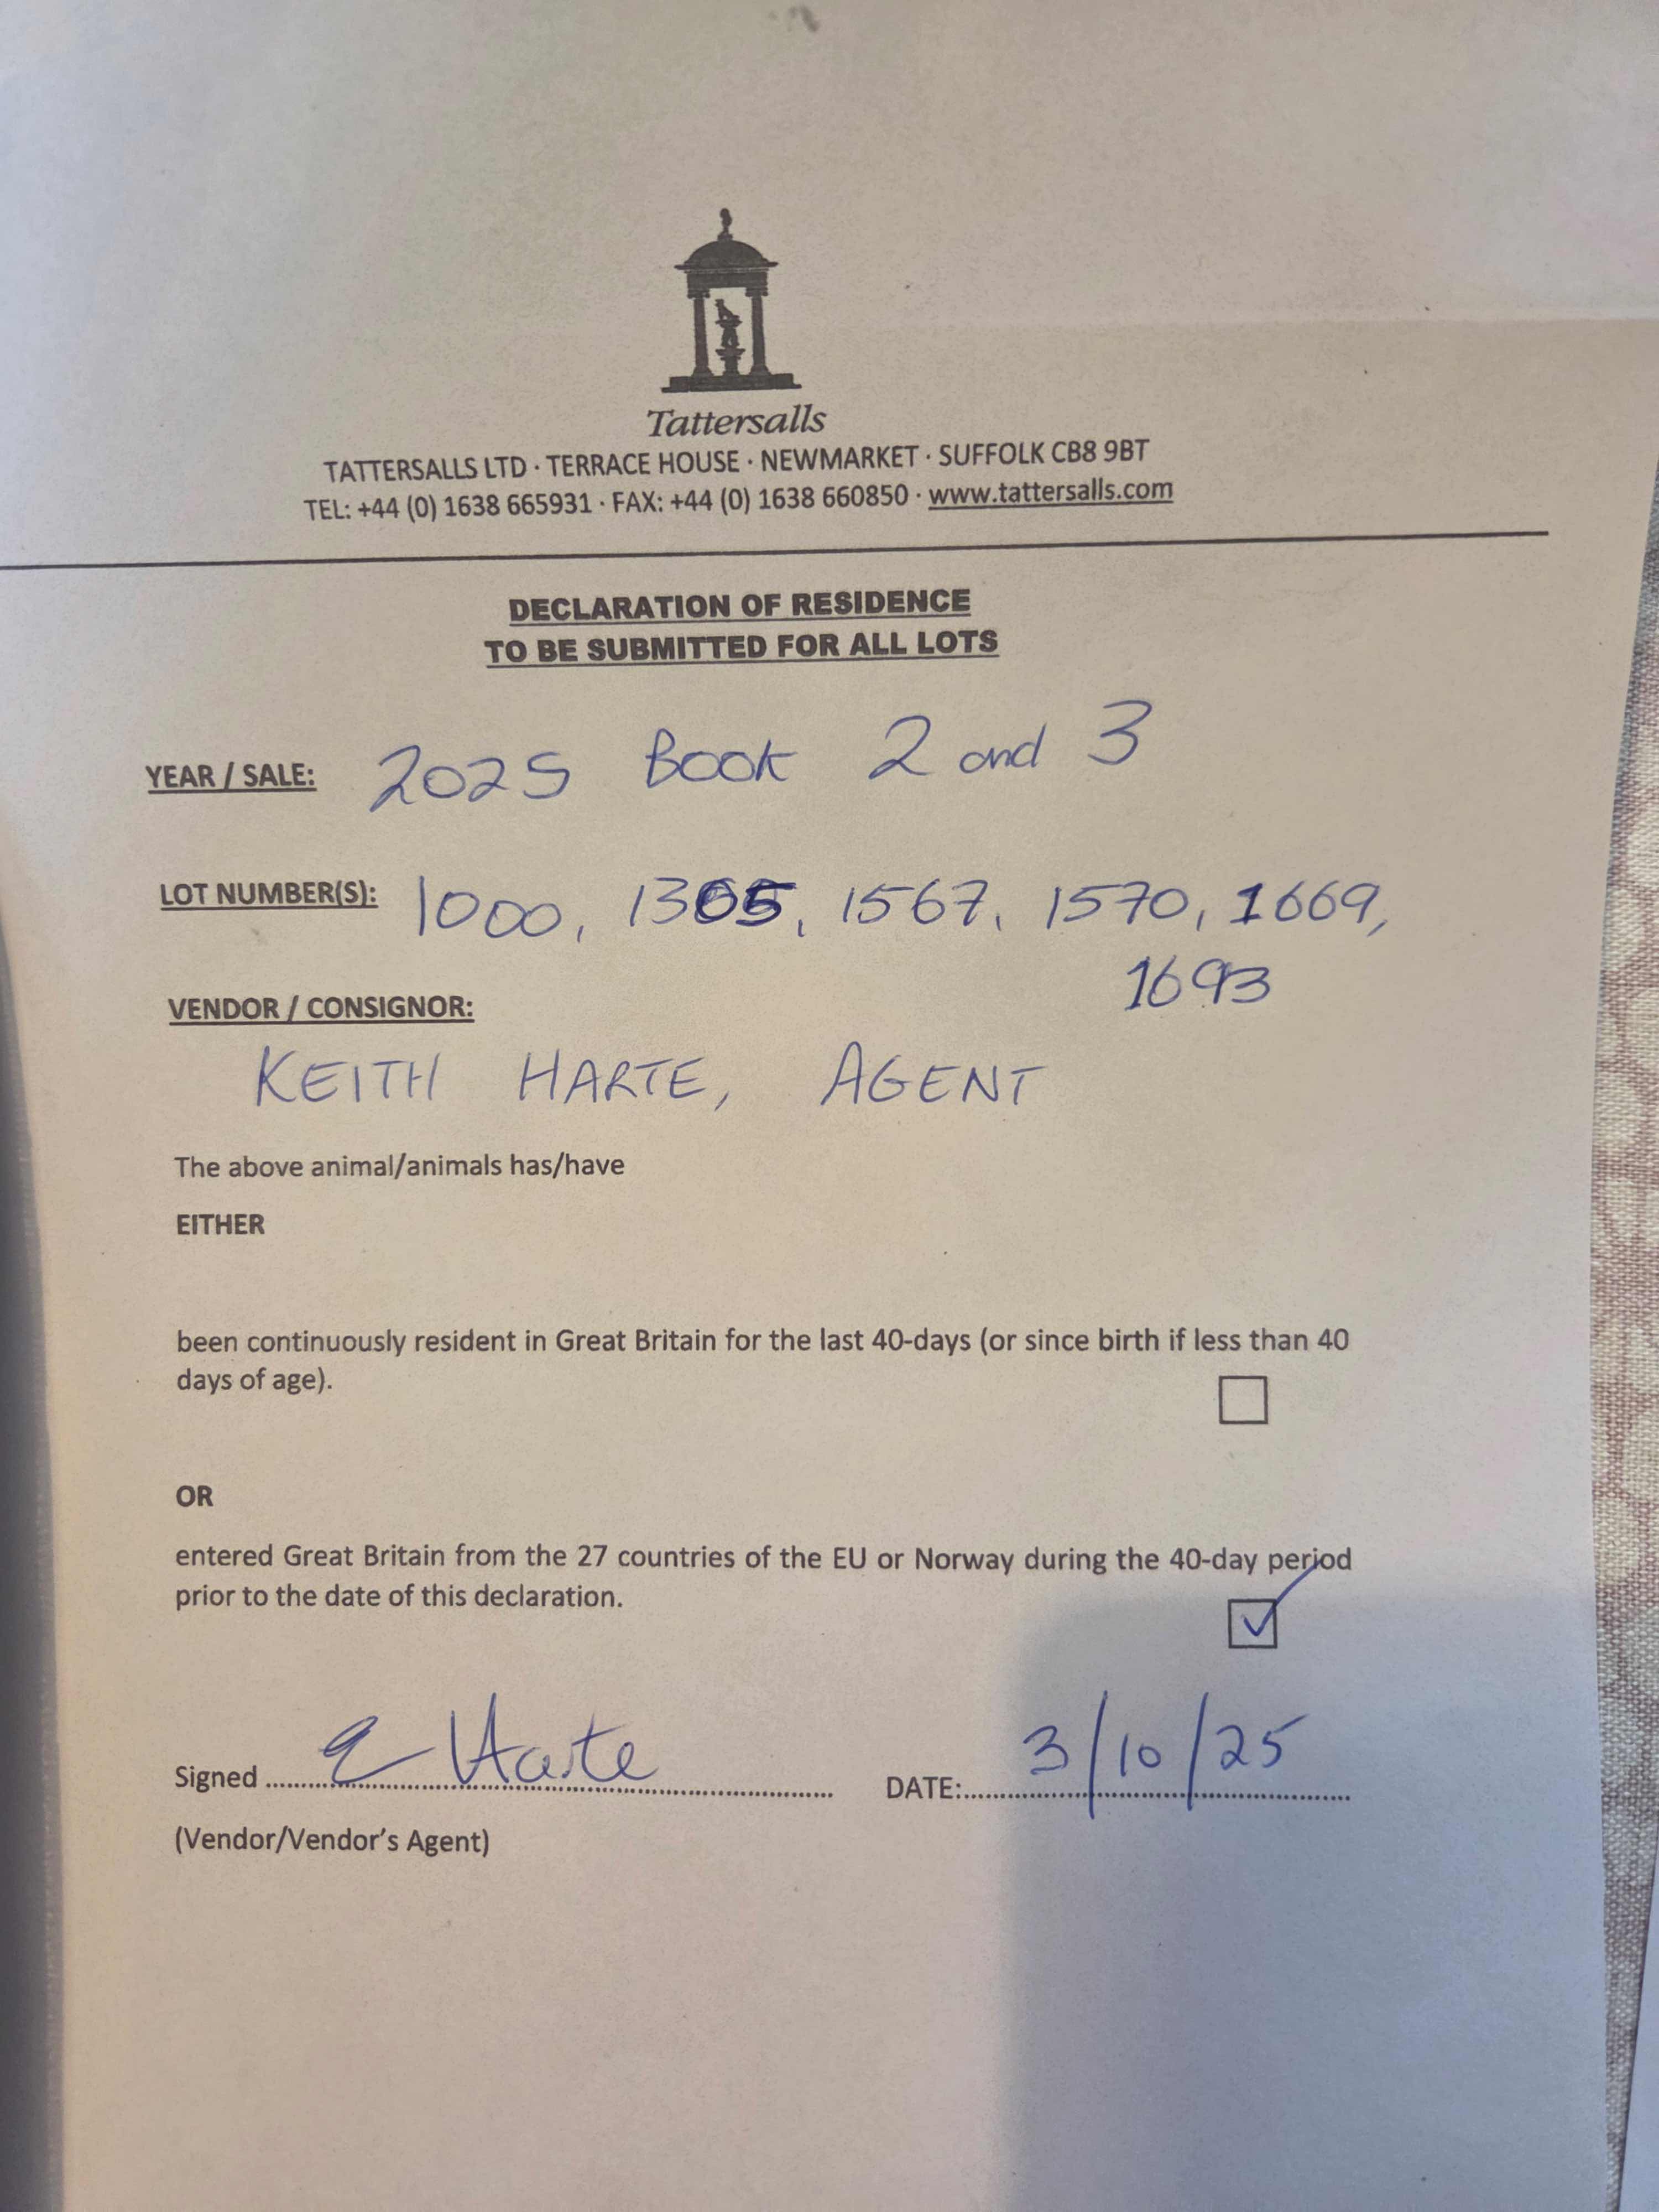 Tattersalls
TATTERSALLS LTD · TERRACE HOUSE · NEWMARKET · SUFFOLK CB8 9BT
TEL: +44 (0) 1638 665931 · FAX: +44 (0) 1638 660850 · www.tattersalls.com
DECLARATION OF RESIDENCE
TO BE SUBMITTED FOR ALL LOTS
YEAR / SALE: 2025 Book 2 and 3
LOT NUMBER(S): 1000, 1305, 1567, 1570, 1669,
1693
VENDOR / CONSIGNOR:
KEITH HARTE, AGENT
The above animal/animals has/have
EITHER
been continuously resident in Great Britain for the last 40-days (or since birth if less than 40
days of age).
OR
entered Great Britain from the 27 countries of the EU or Norway during the 40-day period
prior to the date of this declaration.
Signed Harte DATE: 3/10/25
(Vendor/Vendor's Agent)